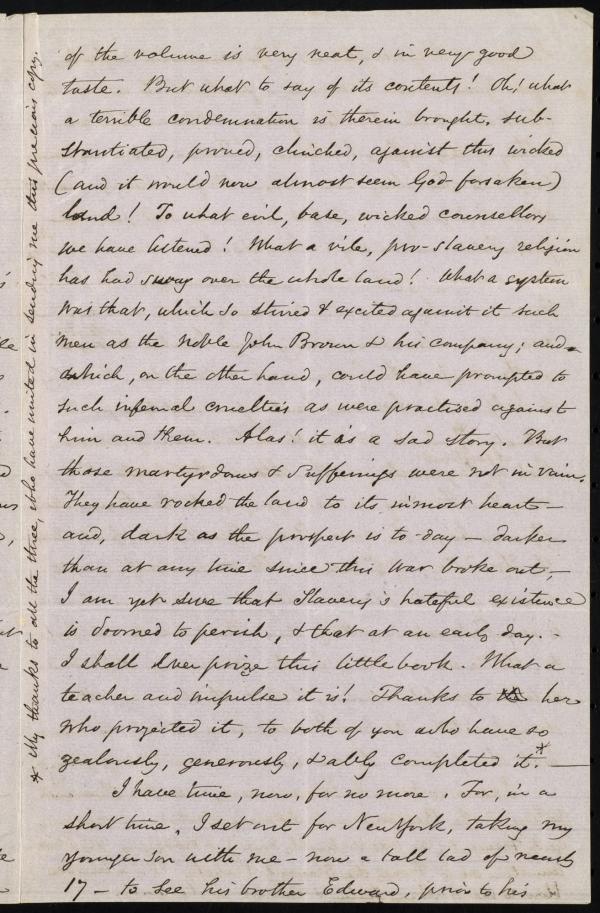 of the volume is very neat, & in very good
taste. But what to say of its contents! Oh! what
a terrible condemnation is therein brought, sub-
stantiated, proved, clinched, against this wicked
(and it would now almost seem God-forsaken)
land! To what evil, base, wicked counsellors
we have listened! What a vile, pro-slavery religion
has had sway over the whole land! What a system
was that, which so stirred & excited against it such
men as the noble John Brown & his company; and
which, on the other hand, could have prompted to
such infernal cruelties as were practised against
him and them. Alas! it is a sad story. But
those martyrdoms & sufferings were not in vain.
They have rocked the land to its inmost heart –
and, dark as the prospect is to-day – darker
than at any time since this war broke out, –
I am yet sure that Slavery's hateful existence
is doomed to perish, & that at an early day. –
I shall ever prize this little book. What a
teacher and impulse it is! Thanks to her
who projected it, to both of you who have so
zealously, generously, & ably completed it.* —
I have time, now, for no more. For, in a
short time, I set out for New York, taking my
younger son with me – now a tall lad of nearly
17 – to see his brother Edward, prior to his
* My thanks to all the three, who have united in sending me this precious copy.